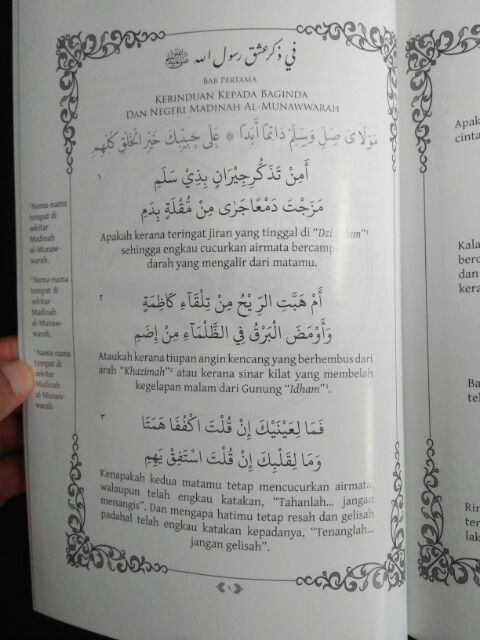 في ذكر عشق رسول الله ﷺ
BAB PERTAMA
KERINDUAN KEPADA BAGINDA
DAN NEGERI MADINAH AL-MUNAWWARAH
مَوْلَايَ صَلِّ وَسَلِّمْ دَائِمًا أَبَدًا * عَلَى حَبِيبِكَ خَيْرِ الْخَلْقِ كُلِّهِمِ
١
أَمِنْ تَذَكُّرِ جِيْرَانٍ بِذِيْ سَلَمِ
مَزَجْتَ دَمْعًا جَرَى مِنْ مُقْلَةٍ بِدَمِ
Apakah kerana teringat jiran yang tinggal di “Dzi Salam”¹
sehingga engkau cucurkan airmata bercampur
darah yang mengalir dari matamu.
٢
أَمْ هَبَّتِ الرِّيْحُ مِنْ تِلْقَاءِ كَاظِمَةٍ
وَأَوْمَضَ الْبَرْقُ فِي الظَّلْمَاءِ مِنْ إِضَمِ
Ataukah kerana tiupan angin kencang yang berhembus dari
arah “Khazimah”² atau kerana sinar kilat yang membelah
kegelapan malam dari Gunung “Idham”³.
٣
فَمَا لِعَيْنَيْكَ إِنْ قُلْتَ اكْفُفَا هَمَتَا
وَمَا لِقَلْبِكَ إِنْ قُلْتَ اسْتَفِقْ يَهِمِ
Kenapakah kedua matamu tetap mencucurkan airmata,
walaupun telah engkau katakan, “Tahanlah... jangan
menangis”. Dan mengapa hatimu tetap resah dan gelisah
padahal telah engkau katakan kepadanya, “Tenanglah...
jangan gelisah”.
١
¹Nama-nama
tempat di
sekitar
Madinah
al-Munaw-
warah.
²Nama-nama
tempat di
sekitar
Madinah
al-Munaw-
warah.
³Nama-nama
tempat di
sekitar
Madinah
al-Munaw-
warah.
Apak
cinta
Kala
berc
dan
kera
Ba
tel
Rin
ter
lak